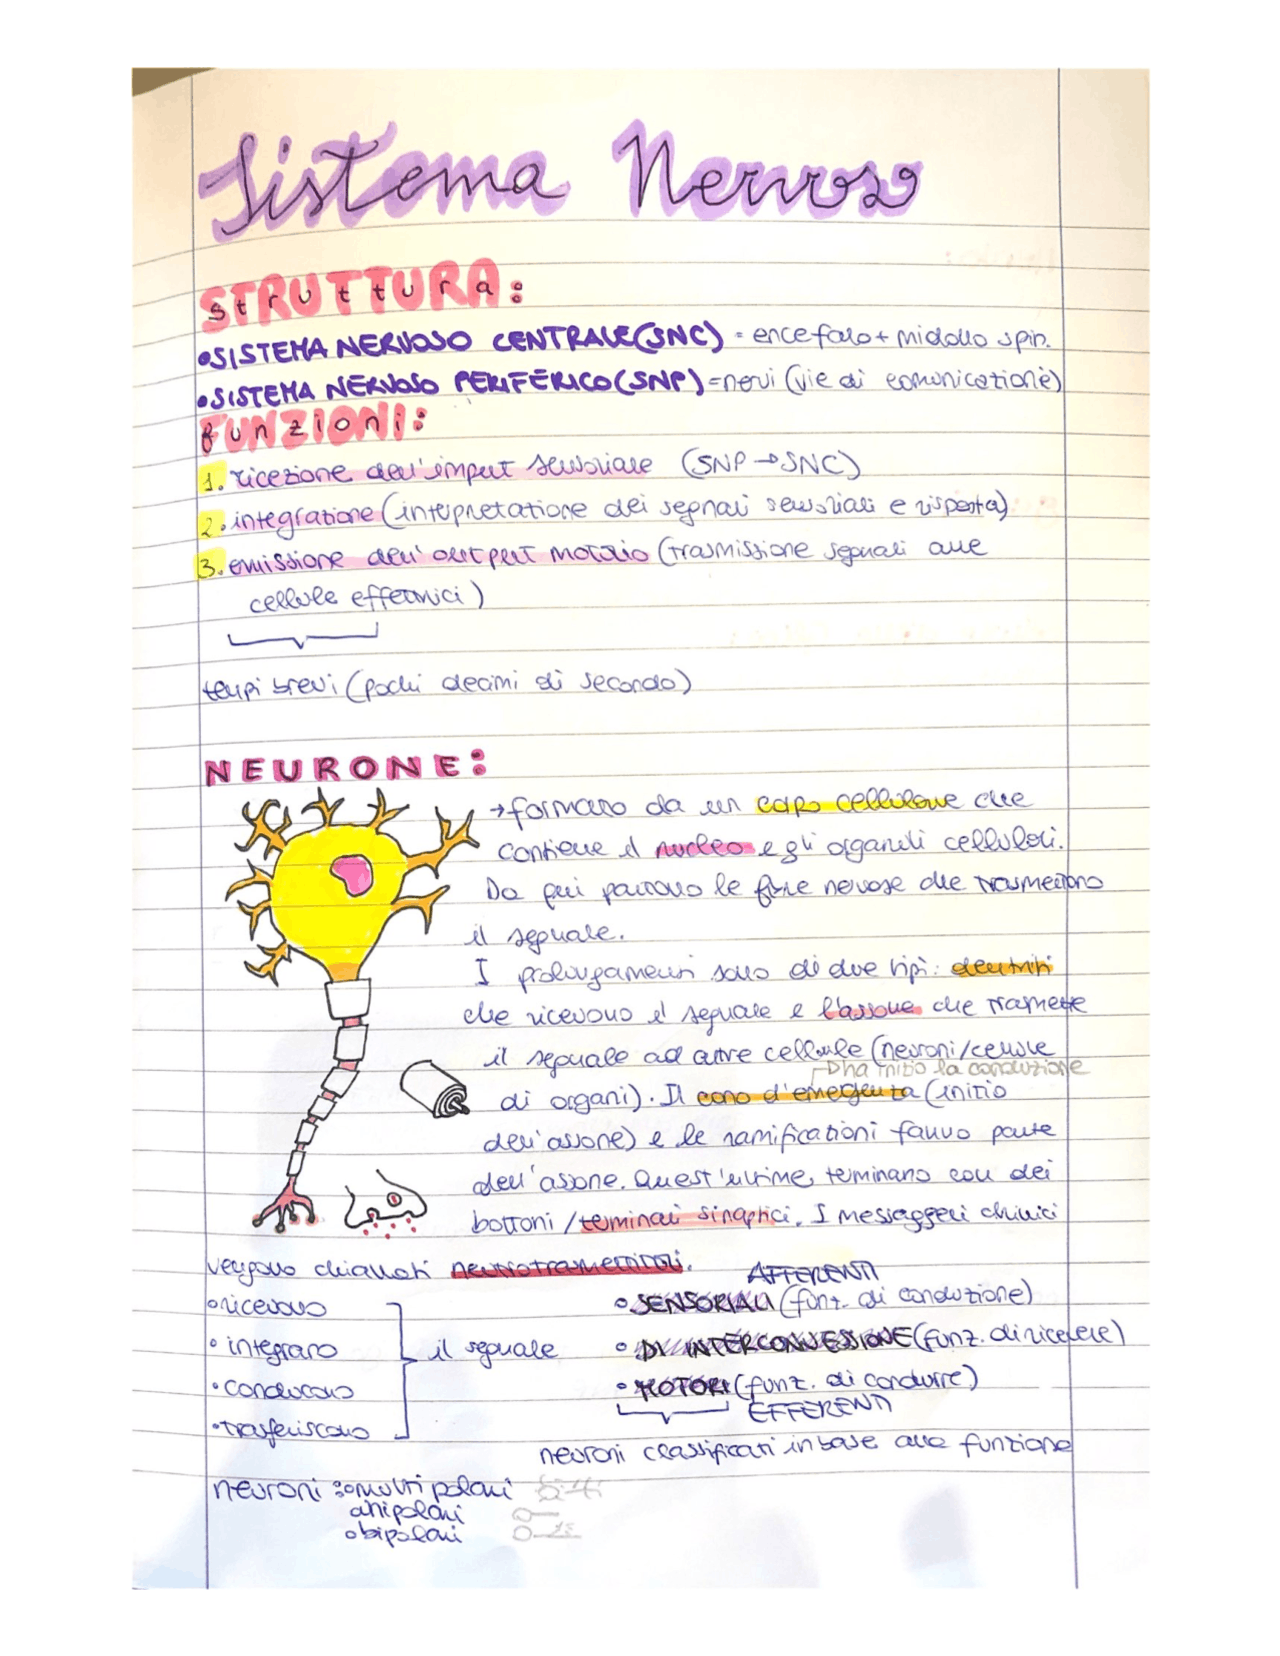 Sistema Nervoso
STRUTTURA:
•SISTEMA NERVOSO CENTRALE(SNC) = encefalo + midollo spin.
•SISTEMA NERVOSO PERIFERICO(SNP) = nervi (vie di comunicazione)
FUNZIONI:
1. ricezione dell'imput sensoriale (SNP→SNC)
2. integrazione (interpretazione dei segnali sensoriali e risposta)
3. emissione dell'output motorio (trasmissione segnali alle
cellule effettrici)
tempi brevi (pochi decimi di secondo)
NEURONE:
→ formato da un corpo cellulare che
contiene il nucleo e gli organuli cellulari.
Da qui partono le fibre nervose che trasmettono
il segnale.
I prolungamenti sono di due tipi: dentriti
che ricevono il segnale e l'assone che trasmette
il segnale ad altre cellule (neuroni/cellule
ha inizio la conduzione
di organi). Il cono d'emergenza (inizio
dell'assone) e le ramificazioni fanno parte
dell'assone. Quest'ultime, terminano con dei
bottoni / terminali sinaptici. I messaggeri chimici
vengono chiamati neurotrasmettitori.
AFFERENTI
• ricevono
• SENSORIALI (funz. di conduzione)
• integrano
il segnale
• DI INTERCONNESSIONE (funz. di ricevere)
• conducono
• MOTORI (funz. di condurre)
EFFERENTI
• trasferiscono
neuroni classificati in base alla funzione
neuroni: • multipolari
unipolari
• bipolari